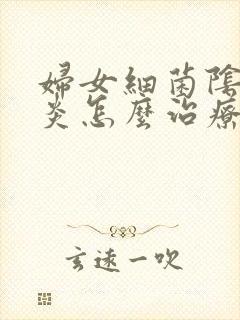 婦女細菌陰
炎怎麼治療
玄遠一吹